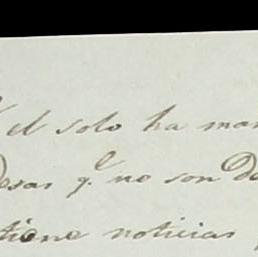 el solo ha man
esas q.e no son De
tiene noticias